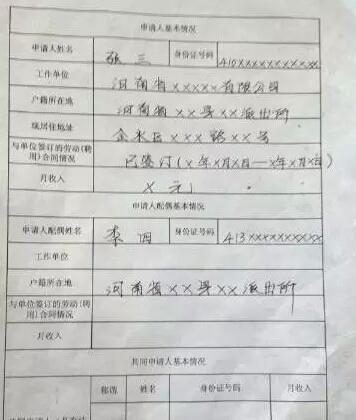 申请人基本情况
申请人姓名 张三 身份证号码 410xxxxxxxxxxxx
工作单位 河南省xxxxx有限公司
户籍所在地 河南省xx县xx派出所
现居住地址 金水区xxx路xx号
与单位签订的劳动(聘用)合同情况 已签订(x年x月x日—x年x月x日)
月收入 x元
申请人配偶基本情况
申请人配偶姓名 李四 身份证号码 413xxxxxxxxxx
工作单位
户籍所在地 河南省xx县xx派出所
与单位签订的劳动(聘用)合同情况
月收入
共同申请人基本情况
称谓 姓名 身份证号码 月收入